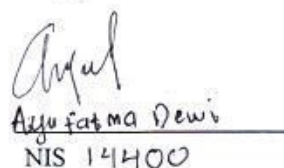 Ayu fatma Dewi
NIS 14400